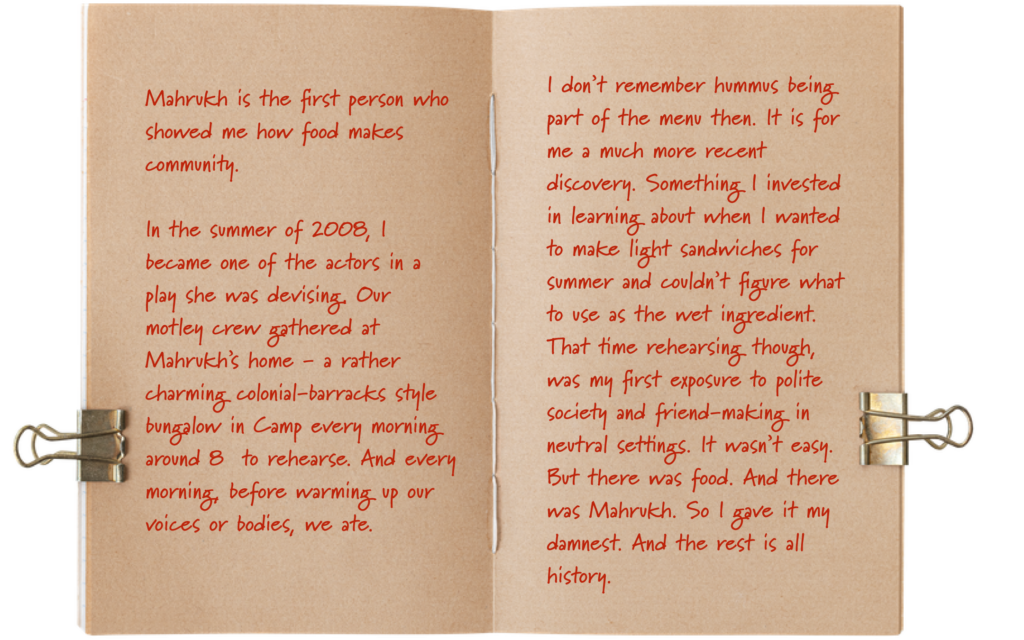 Mahrukh is the first person who
showed me how food makes
community.
In the summer of 2008, I
became one of the actors in a
play she was devising. Our
motley crew gathered at
Mahrukh's home - a rather
charming colonial-barracks style
bungalow in Camp every morning
around 8 to rehearse. And every
morning, before warming up our
voices or bodies, we ate.
I don't remember hummus being
part of the menu then. It is for
me a much more recent
discovery. Something I invested
in learning about when I wanted
to make light sandwiches for
summer and couldn't figure what
to use as the wet ingredient.
That time rehearsing though,
was my first exposure to polite
society and friend-making in
neutral settings. It wasn't easy.
But there was food. And there
was Mahrukh. So I gave it my
damnest. And the rest is all
history.